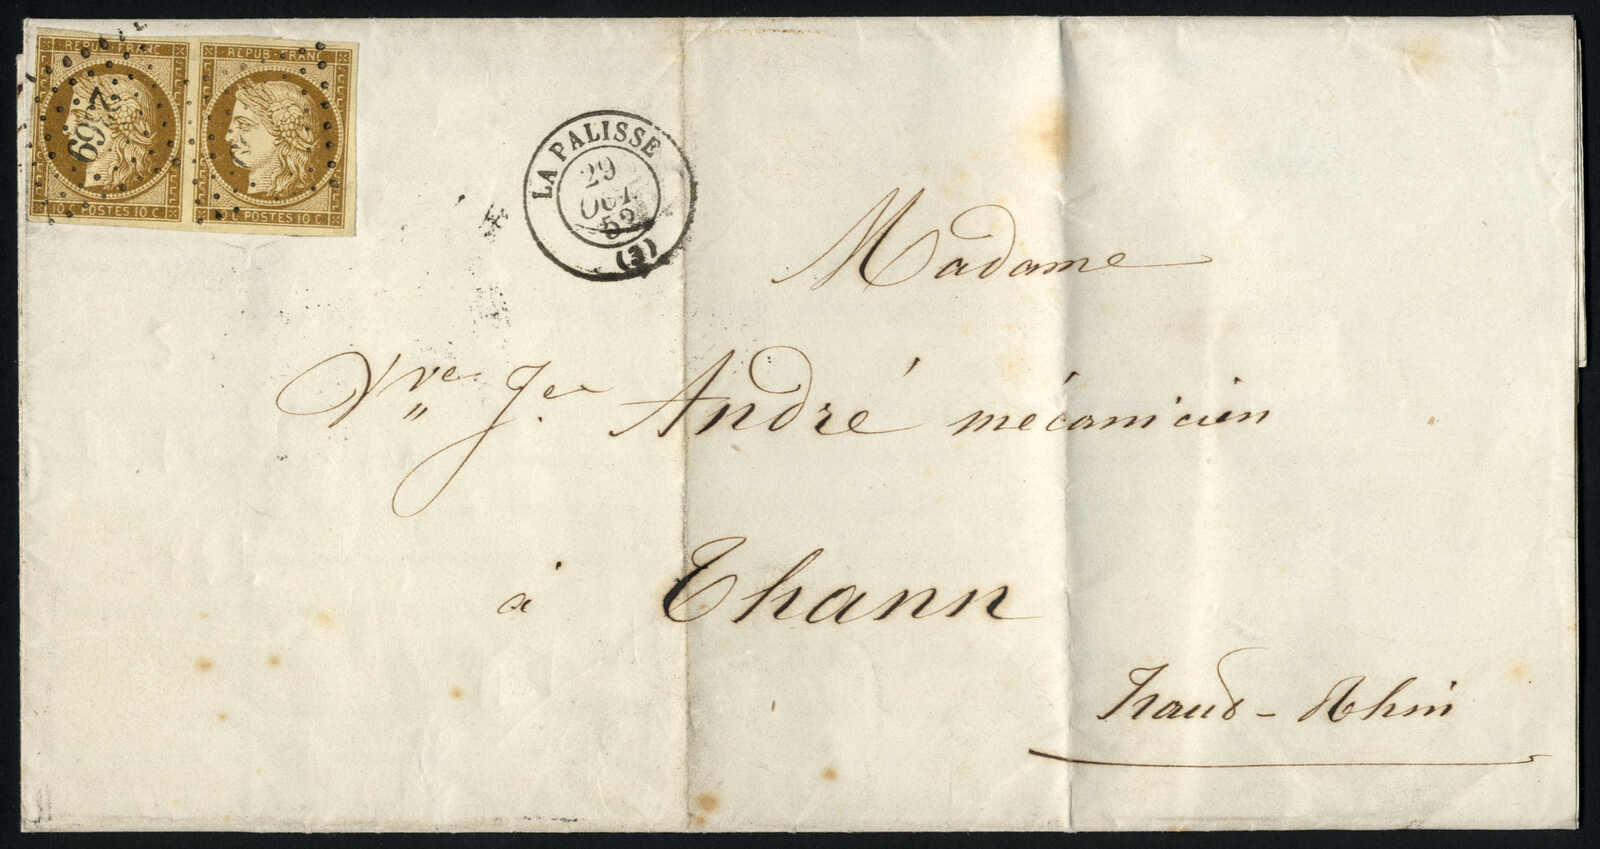 REPUB·FRANC REPUB·FRANC
10 C. POSTES 10 C. POSTES 10 C.
LA PALISSE
29
OCT.
52
(3)
Madame
Vve Je André mécanicien
à Thann
haut-Rhin